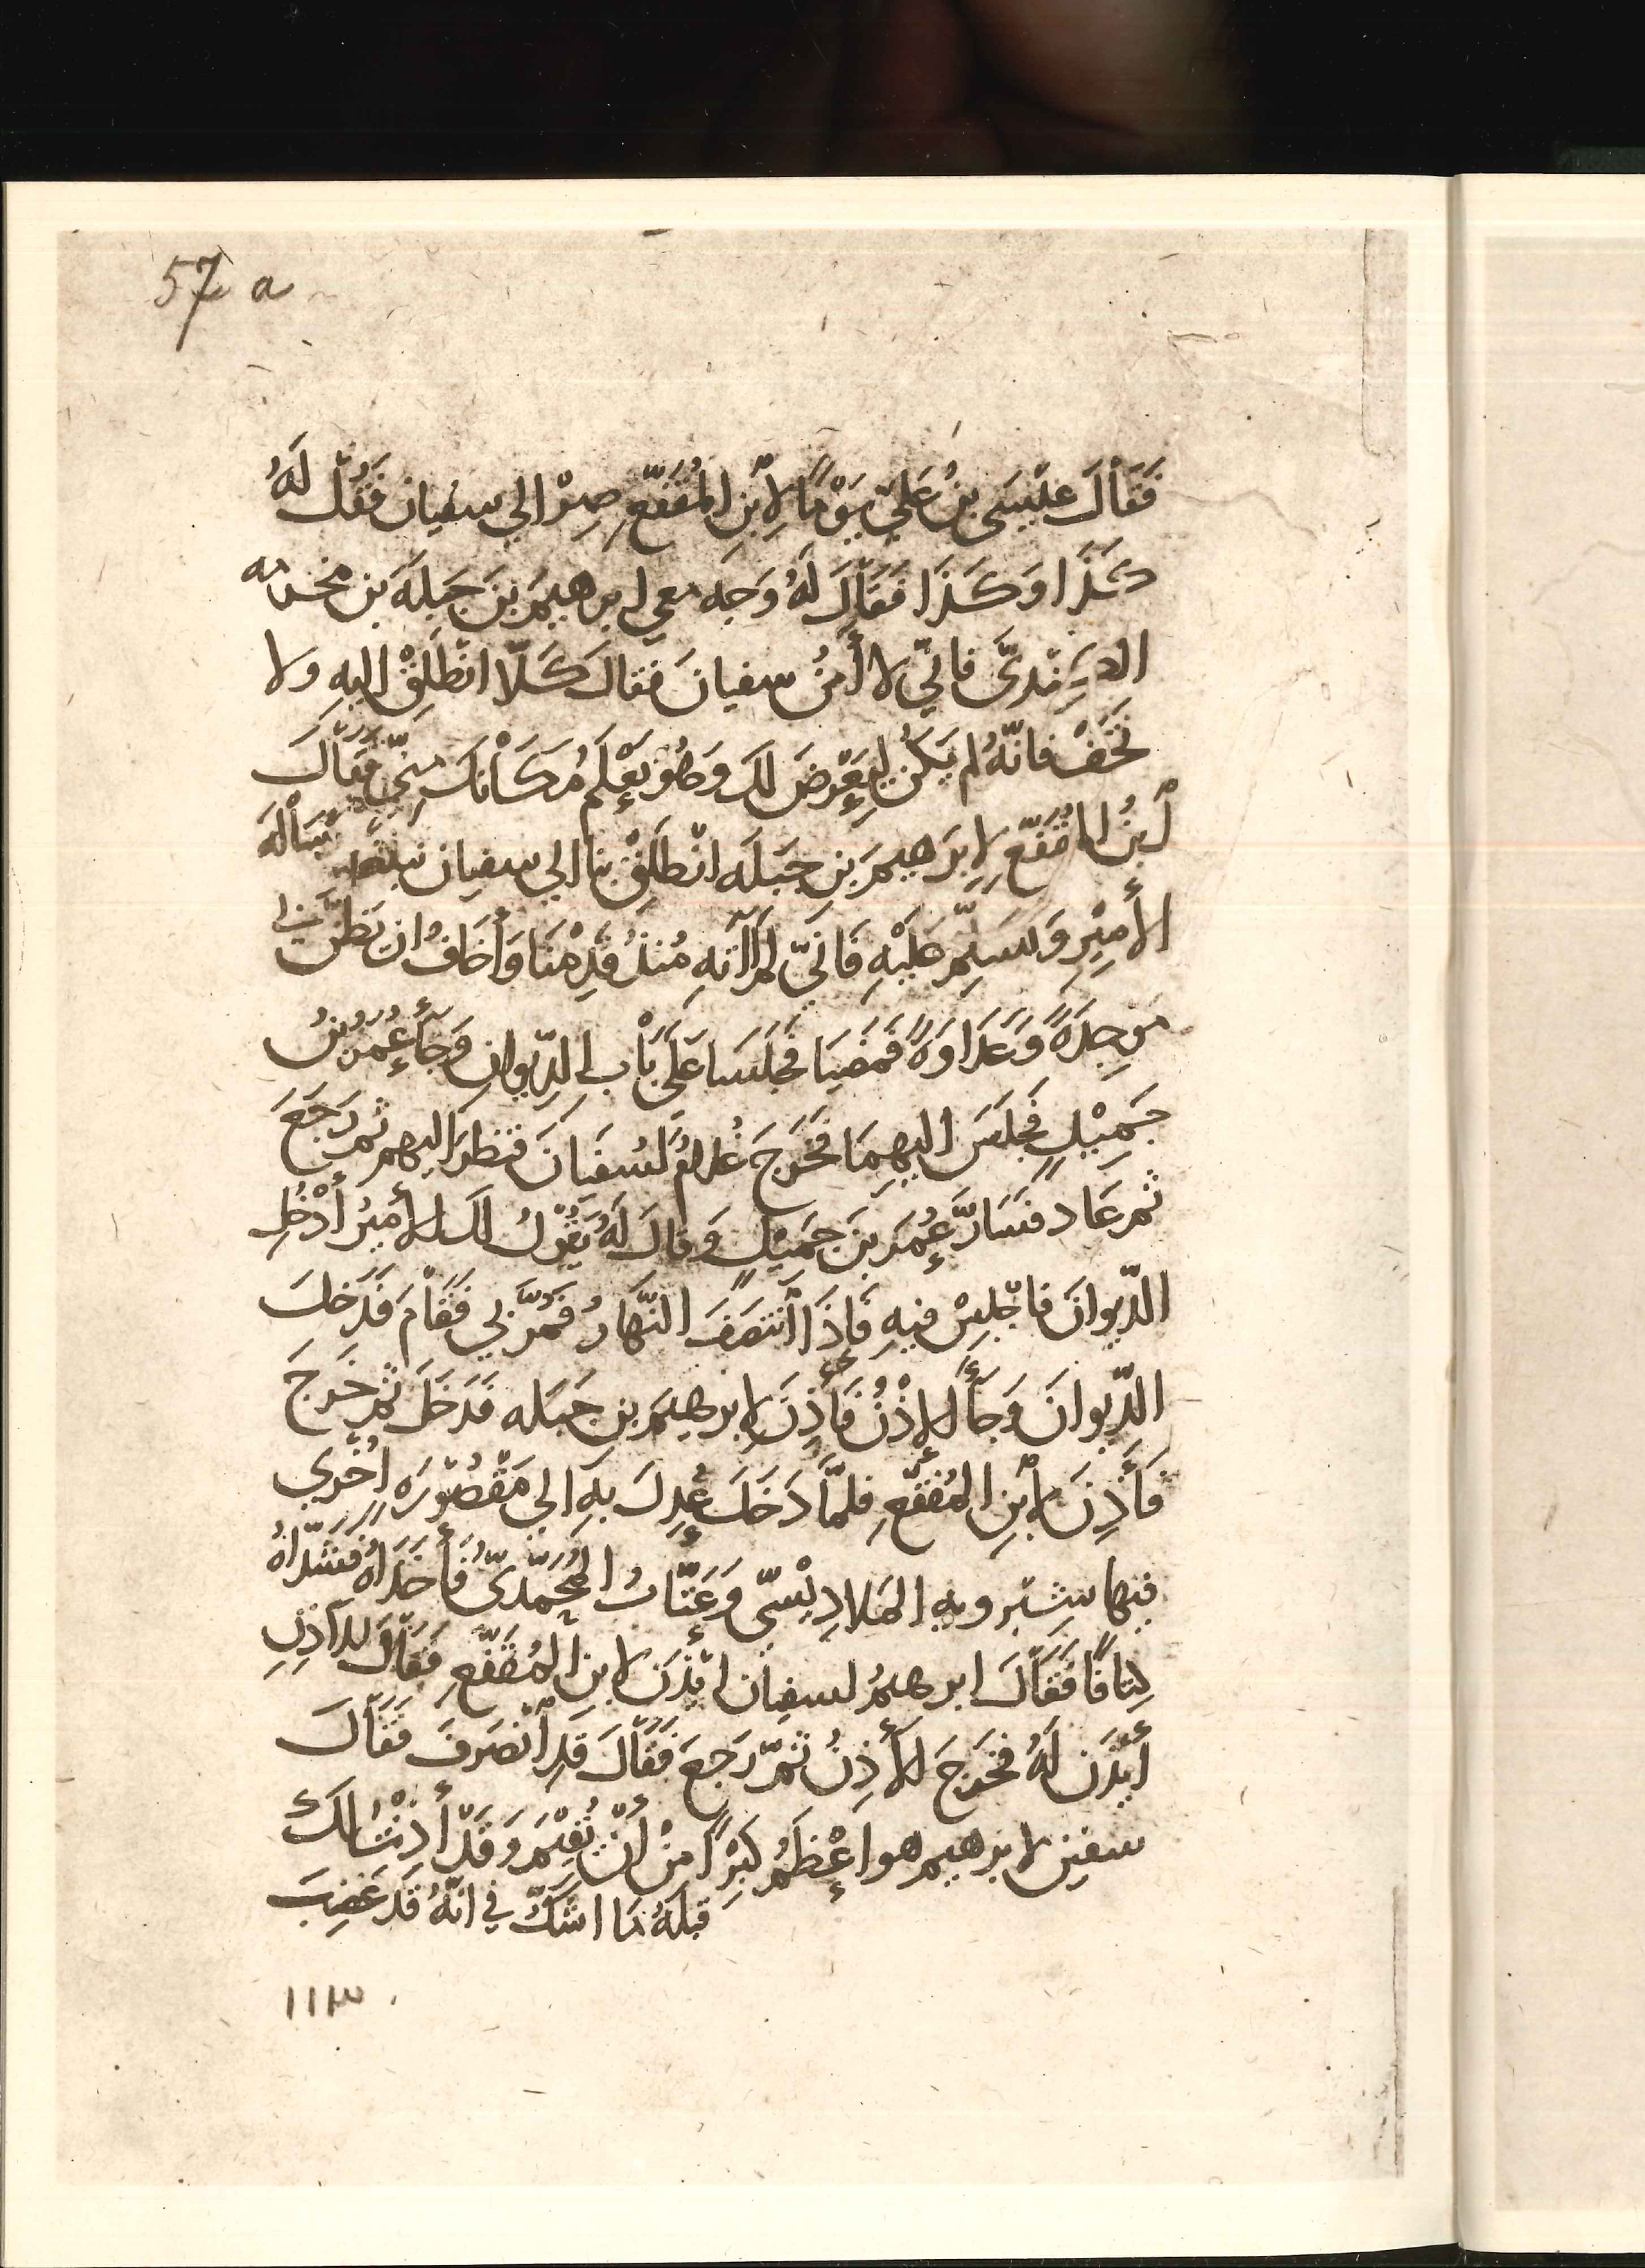 57 a
فَقَالَ عِيْسَى بنُ عَليٍّ يَوْمًا لِابْنِ المُقَفَّعِ صِرْ الي سفيان فَقُلْ لَهُ
كَذَا وَكَذَا فَقَالَ لَهُ وَجِّه معي ابرهيمَ بنَ جَبَلَةَ بن مخرمه
الكِنْدِيَّ فانّي لا آمَنُ سفيانَ فقالَ كَلَّا انْطَلِقْ اليهِ ولا
تَخَفْ فانّهُ لم يَكُنْ لِيَعْرِضَ لك وَهُوَ يَعْلَمُ مَكَانَكَ مِنّي فَقَالَ
ابْنُ المُقَفَّعِ لِابرَهيمَ بنِ جَبَلَه انْطَلِقْ بنا الي سفيان
الأميْرِ وَنُسَلِّم عَلَيْهِ فَانّي لم آتِهِ مُنذُ قَدِمْنَا وَأَخَافُ ان يَظُنَّ بي
مَوجِدَةً وَعَدَاوَةً فَمَضَيَا فَجَلَسَا عَلَى بَابِ الدِّيوانِ وَجَآءَ عُمَرُ بنُ
جَمِيْلٍ فَجَلَسَ اليهِمَا فَخَرَجَ غُلامٌ لسُفيَانَ فنظرَ اليهم ثم رَجَعَ
ثم عَادَ فَسَارَّ عُمَرَ بنَ جَمِيْلٍ وَقالَ لَهُ يَقُوْلُ لكَ الأميْرُ أُدْخُلِ
الدّيوانَ فاجْلِسْ فيهِ فَاِذَا انْتَصَفَ النّهَارُ فَمُرَّ بي فَقَامَ فَدَخَلَ
الدّيوانَ وَجَآءَ الاِذْنُ فَأَذِنَ لِابرهيمَ بنِ جَبَله فَدَخَلَ ثم خَرَجَ
فَأَذِنَ لِابْنِ المُقَفَّعِ فلمَّا دَخَلَ عُدِلَ بِهِ الي مَقْصُوْرَه اُخْرى
فيها شِيْرويه المَلادِيْسيّ وَعَتّابُ المُحَمَّدِيّ فَأَخَذَاهُ فَشَدَّاهُ
كِتافًا فَقَالَ ابرهيمُ لسفيان ائْذَن لابنِ المُقَفَّعِ فَقَالَ للآذِنِ
اْيْذَن لَهُ فخَرَجَ الآذِنُ ثمّ رَجعَ فَقَالَ قَدِ انْصَرَفَ فَقَالَ
سفين لابرهيم هو اعْظَمُ كِبْرًا مِنْ اَنْ يُقِيْمَ وَقَدْ أَذِنْتُ لكَ
قبلَهُ مَا اشكُّ في انّهُ قَد غَضِبَ
١١٣